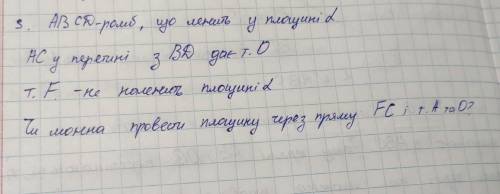 3. АВСД-ромб, що лежить у площині α
АС у перетині з ВД дає т. О
т. F - не належить площині α
Чи можна провести площину через пряму FC і т. А та О?